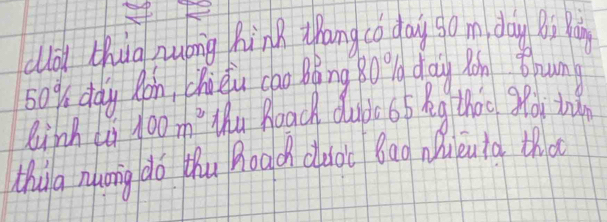 Một thửa ruộng hình thang có đáy 50 m, đáy bé bằng
50% đáy lớn, chiều cao bằng 80% đáy lớn. Trung
bình cứ 100 m² thu hoạch được 65 kg thóc. Hỏi trên
thửa ruộng đó thu hoạch được bao nhiêu tạ thóc